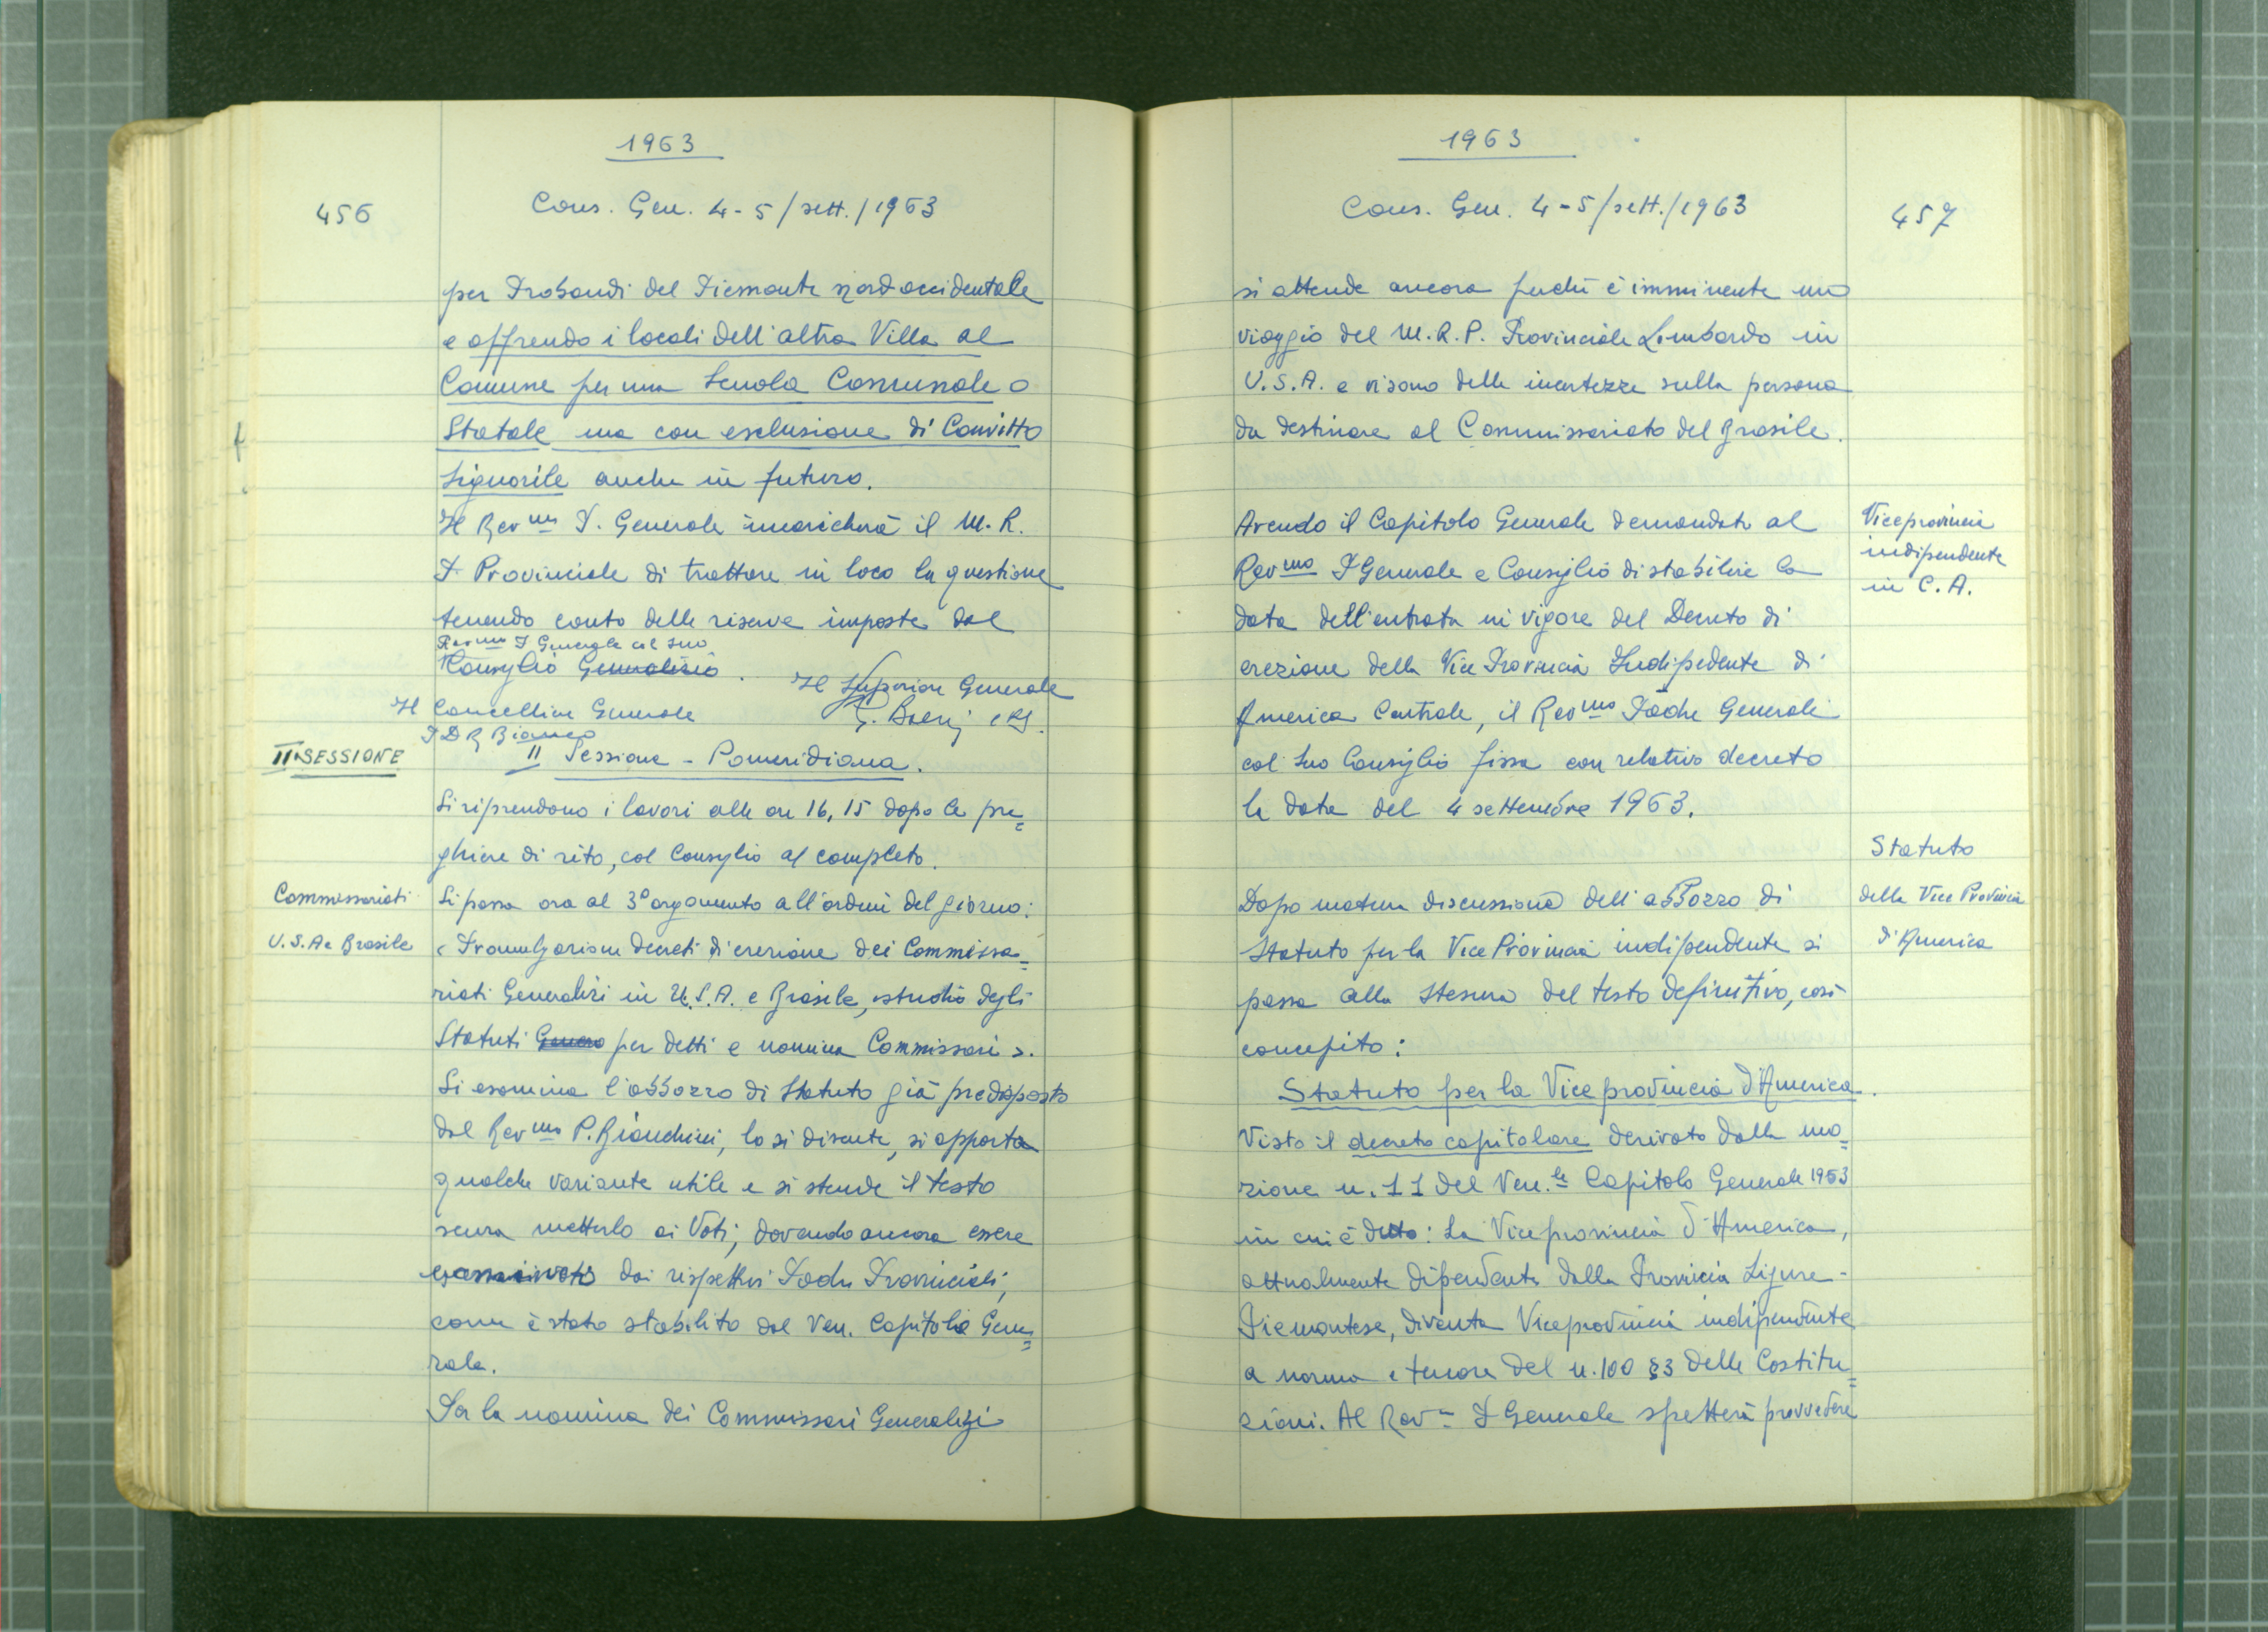 1963
456
Cons. Gen. 4-5/sett./1963
per Probandi del Piemonte nord occidentale
e offrendo i locali dell'altra Villa al
Comune per una Scuola Comunale o
Statale ma con esclusione di Convitto
Signorile anche in futuro.
Il Rev.mo P. Generale incaricherà il M. R.
P. Provinciale di trattare in loco la questione
tenendo conto delle riserve imposte dal
Rev.mo P Generale col suo
Consiglio Generalizio.
Il Superiore Generale
Il Cancelliere Generale
G. Boeri crs.
P D R Bianco
II SESSIONE
II Sessione - Pomeridiana.
Si riprendono i lavori alle ore 16,15 dopo le pre=
ghiere di rito, col Consiglio al completo.
Commissariati
U.S.A e Brasile
Si passa ora al 3° argomento all'ordine del giorno:
< Promulgazione decreti di erezione dei Commissa=
riati Generalizi in U.S.A. e Brasile, studio degli
Statuti Genera per detti e nomina Commissari >.
Si esamina l'abbozzo di Statuto già predisposto
dal Rev.mo P. Bianchini, lo si discute, si apporta
qualche variante utile e si stende il testo
senza metterlo ai Voti, dovendo ancora essere
esaminato dai rispettivi Padri Provinciali,
come è stato stabilito dal Ven. Capitolo Gene=
rale.
Per la nomina dei Commissari Generalizi
1963
Cons. Gen. 4-5/sett./1963
457
si attende ancora perché è imminente uno
viaggio del M.R.P. Provinciale Lombardo in
U.S.A. e vi sono delle incertezze sulla persona
da destinare al Commissariato del Brasile.
Viceprovincia
indipendente
in C.A.
Avendo il Capitolo Generale demandato al
Rev.mo P Generale e Consiglio di stabilire la
data dell'entrata in vigore del Decreto di
erezione della Vice Provincia Indipedente di
America Centrale, il Rev.mo Padre Generale
col suo Consiglio fissa con relativo decreto
la data del 4 settembre 1963.
Statuto
della Vice Provincia
d'America
Dopo matura discussione dell'abbozzo di
Statuto per la Vice Provincia indipendente si
passa alla stesura del testo definitivo, così
concepito:
Statuto per la Viceprovincia d'America.
Visto il decreto capitolare derivato dalla mo=
zione n. 11 del Ven.le Capitolo Generale 1963
in cui è detto: La Viceprovincia d'America,
attualmente dipendente dalla Provincia Ligure-
Piemontese, diventa Viceprovincia indipendente
a norma e tenore del n. 100 §3 delle Costitu=
zioni. Al Rev.mo P Generale spetterà provvedere